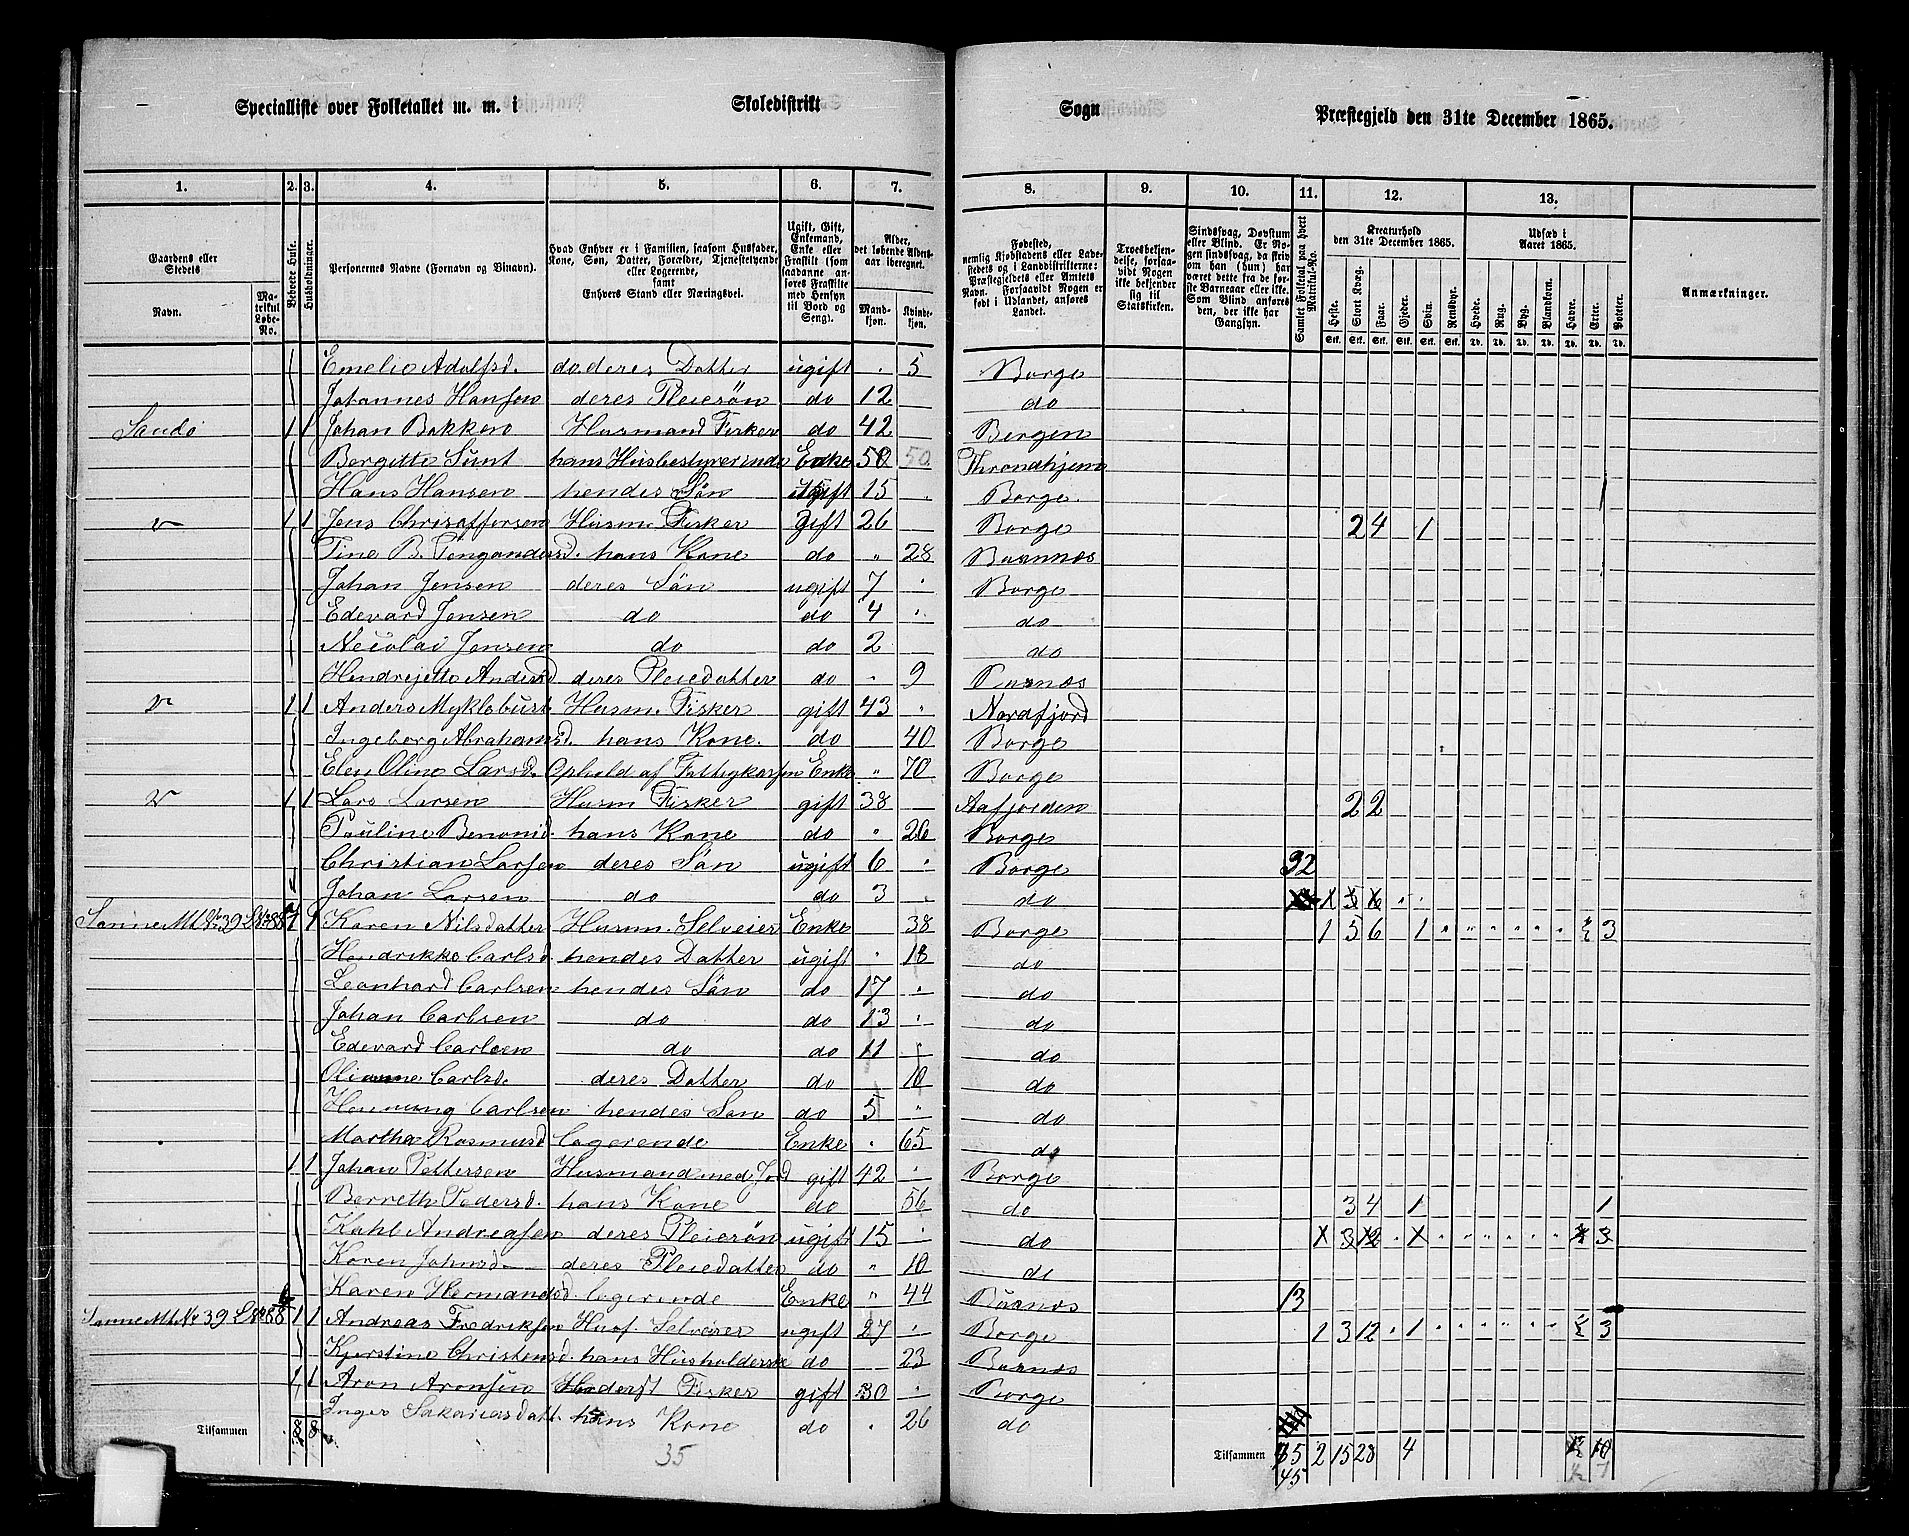 Specialliste over Folketallet m. m. i Skoledistrikt Sogn Præstegjeld den 31te December 1865.
1. 2. 3. 4. 5. 6. 7. 8. 9. 10. 11. 12. 13.
Gaardens eller Stedets
Navn.
Matrikul Løbe-No.
Beboede Huse.
Husholdninger.
Personernes Navne (Fornavn og Tilnavn).
Hvad Enhver er i Familien, saasom Husfader, Kone, Søn, Datter, Forældre, Tjenestetyende eller Logerende, samt Enhvers Stand eller Næringsvei.
Ugift, Gift, Enkemand, Enke eller Fraskilt (som saadanne anføres Fraskilte med Hensyn til Bord og Seng).
Alder, det løbende Alders-aar iberegnet.
Mandkjøn. Kvindekjøn.
Fødested, nemlig Kjøbstadens eller Ladestedets og i Landdistrikterne: Præstegjeldets eller Amtets Navn. Forsaavidt Nogen er født i Udlandet, anføres Landet.
Troesbekjendelse, forsaavidt Nogen ikke bekjender sig til Statskirken.
Sindssvag, Døvstum eller Blind. Er Nogen sindssvag, da skriv om han (hun) har været dette fra de første Barneaar eller ikke. Som Blind anføres den, der ikke har Gangsyn.
Samlet Folketal paa hvert Matrikul-No.
Kreaturhold den 31te December 1865.
Heste. Stort Kvæg. Faar. Gjeder. Svin. Rensdyr.
Udsæd i Aaret 1865.
Hvede. Rug. Byg. Blandkorn. Havre. Erter. Poteter.
Anmærkninger.
Emelie Adolfsd. do deres Datter ugift " 5 Borge
Johannes Hansen deres Pleiesøn do 12 do
Sandø 1 1 Johan Bakken Husmand Fisker do 42 Bergen
Bergitte Sunt hans Husbestyrerinde Enke 50 50 Throndhjem
Hans Hansen hendes Søn ugift 15 Borge
v 1 1 Jens Christoffersen Husm. Fisker Gift 26 Borge 2 4 1
Tine B. hans Kone do " 28 Buxnæs
Johan Jensen deres Søn ugift 7 Borge
Edevard Jensen do do 4 do
Nicolai Jensen do do 2 do
Hendrejette Andersd deres Pleiedatter do " 9 Buxnæs
v 1 1 Anders Myklebust Husm. Fisker gift 43 " Nordfjord
Ingeborg Abrahamsd. hans Kone. do 40 Borge
Elen Oline Larsd. Ophold af Fattigkassen Enke " 70 Borge
v 1 1 Lars Larsen Husm Fisker gift 38 Aafjorden 2 2
Pauline Benonid. hans Kone do " 26 Borge
Christian Larsen deres Søn ugift 6 Borge 32
Johan Larsen do do 3 do
Sanne Mt. No 39 LNo 88 1 1 Karen Nilsdatter Husm. Selveier Enke 38 Borge 1 5 6 1 " " " " " ½ 3
Hendrikke Carlsd. hendes Datter ugift " 18 do
Leonhard Carlsen hendes Søn do 17 do
Johan Carlsen do do 13 do
Edevard Carlsen do do 11 do
Olianne Carlsd. deres Datter do 10 do
Henning Carlsen hendes Søn do 5 " do
Martha Rasmusd logerende Enke " 65 do
1 1 Johan Pettersen Husmand med Jord gift 42 Borge
Berreth Pedersd. hans Kone do 56 do 3 4 1 1
Kahl Andreasen deres Pleiesøn ugift 15 do
Karen Johnsd deres Pleiedatter do " 10 do
Karen Hermandsd. logerende Enke " 44 Buxnæs 13
Sanne Mt. No 39 LNo 88 b 1 1 Andreas Fredriksen Husf. Selveier ugift 27 Borge 1 3 12 " 1 " " " " " ½ 3
Kjerstine Christensd. hans Husholderske do 23 Buxnæs
1 1 Aron Aronsen Inderst Fisker gift 30 Borge
Inger Sakariasdatt. hans Kone do " 26 do
Tilsammen 8 8 35
Tilsammen 2 15 28 4 10
45 7